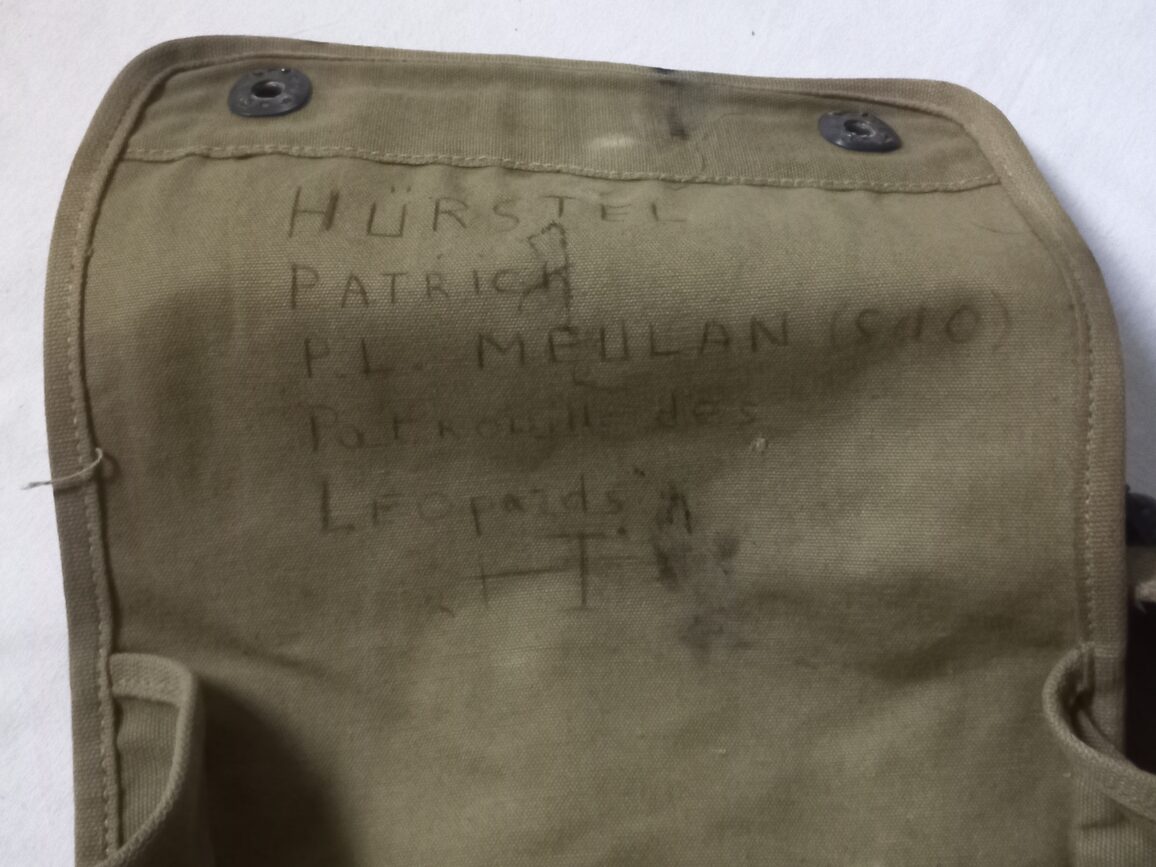 HÜRSTEL
PATRICK
P.L. MEULAN (S/O)
Patrouille des
LEOpards